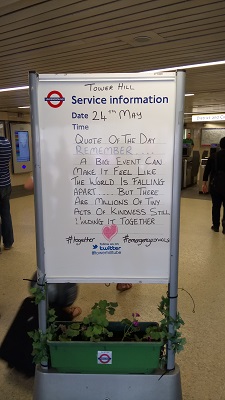 TOWER HILL
Service information
Date 24TH MAY
Time
QUOTE OF THE DAY
REMEMBER....
A BIG EVENT CAN
MAKE IT FEEL LIKE
THE WORLD IS FALLING
APART..... BUT THERE
ARE MILLIONS OF TINY
ACTS OF KINDNESS STILL
HOLDING IT TOGETHER
#together #emergencyservices
twitter